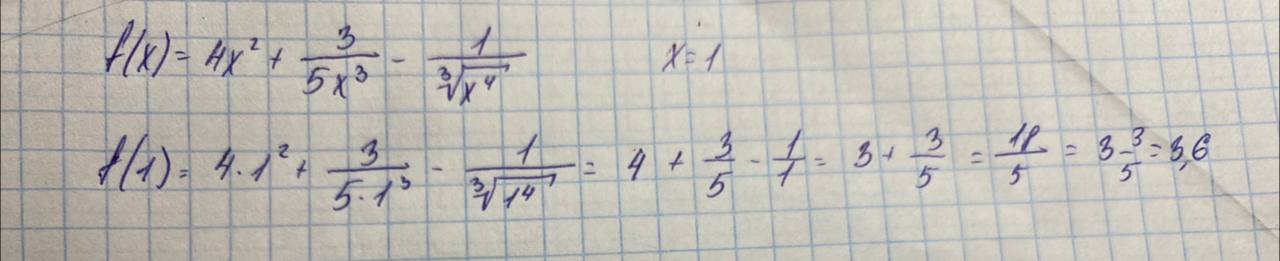 f(x) = 4x² + 3/(5x³) - 1/∛(x⁴) x = 1
f(1) = 4·1² + 3/(5·1³) - 1/∛(1⁴) = 4 + 3/5 - 1/1 = 3 + 3/5 = 18/5 = 3 3/5 = 3,6